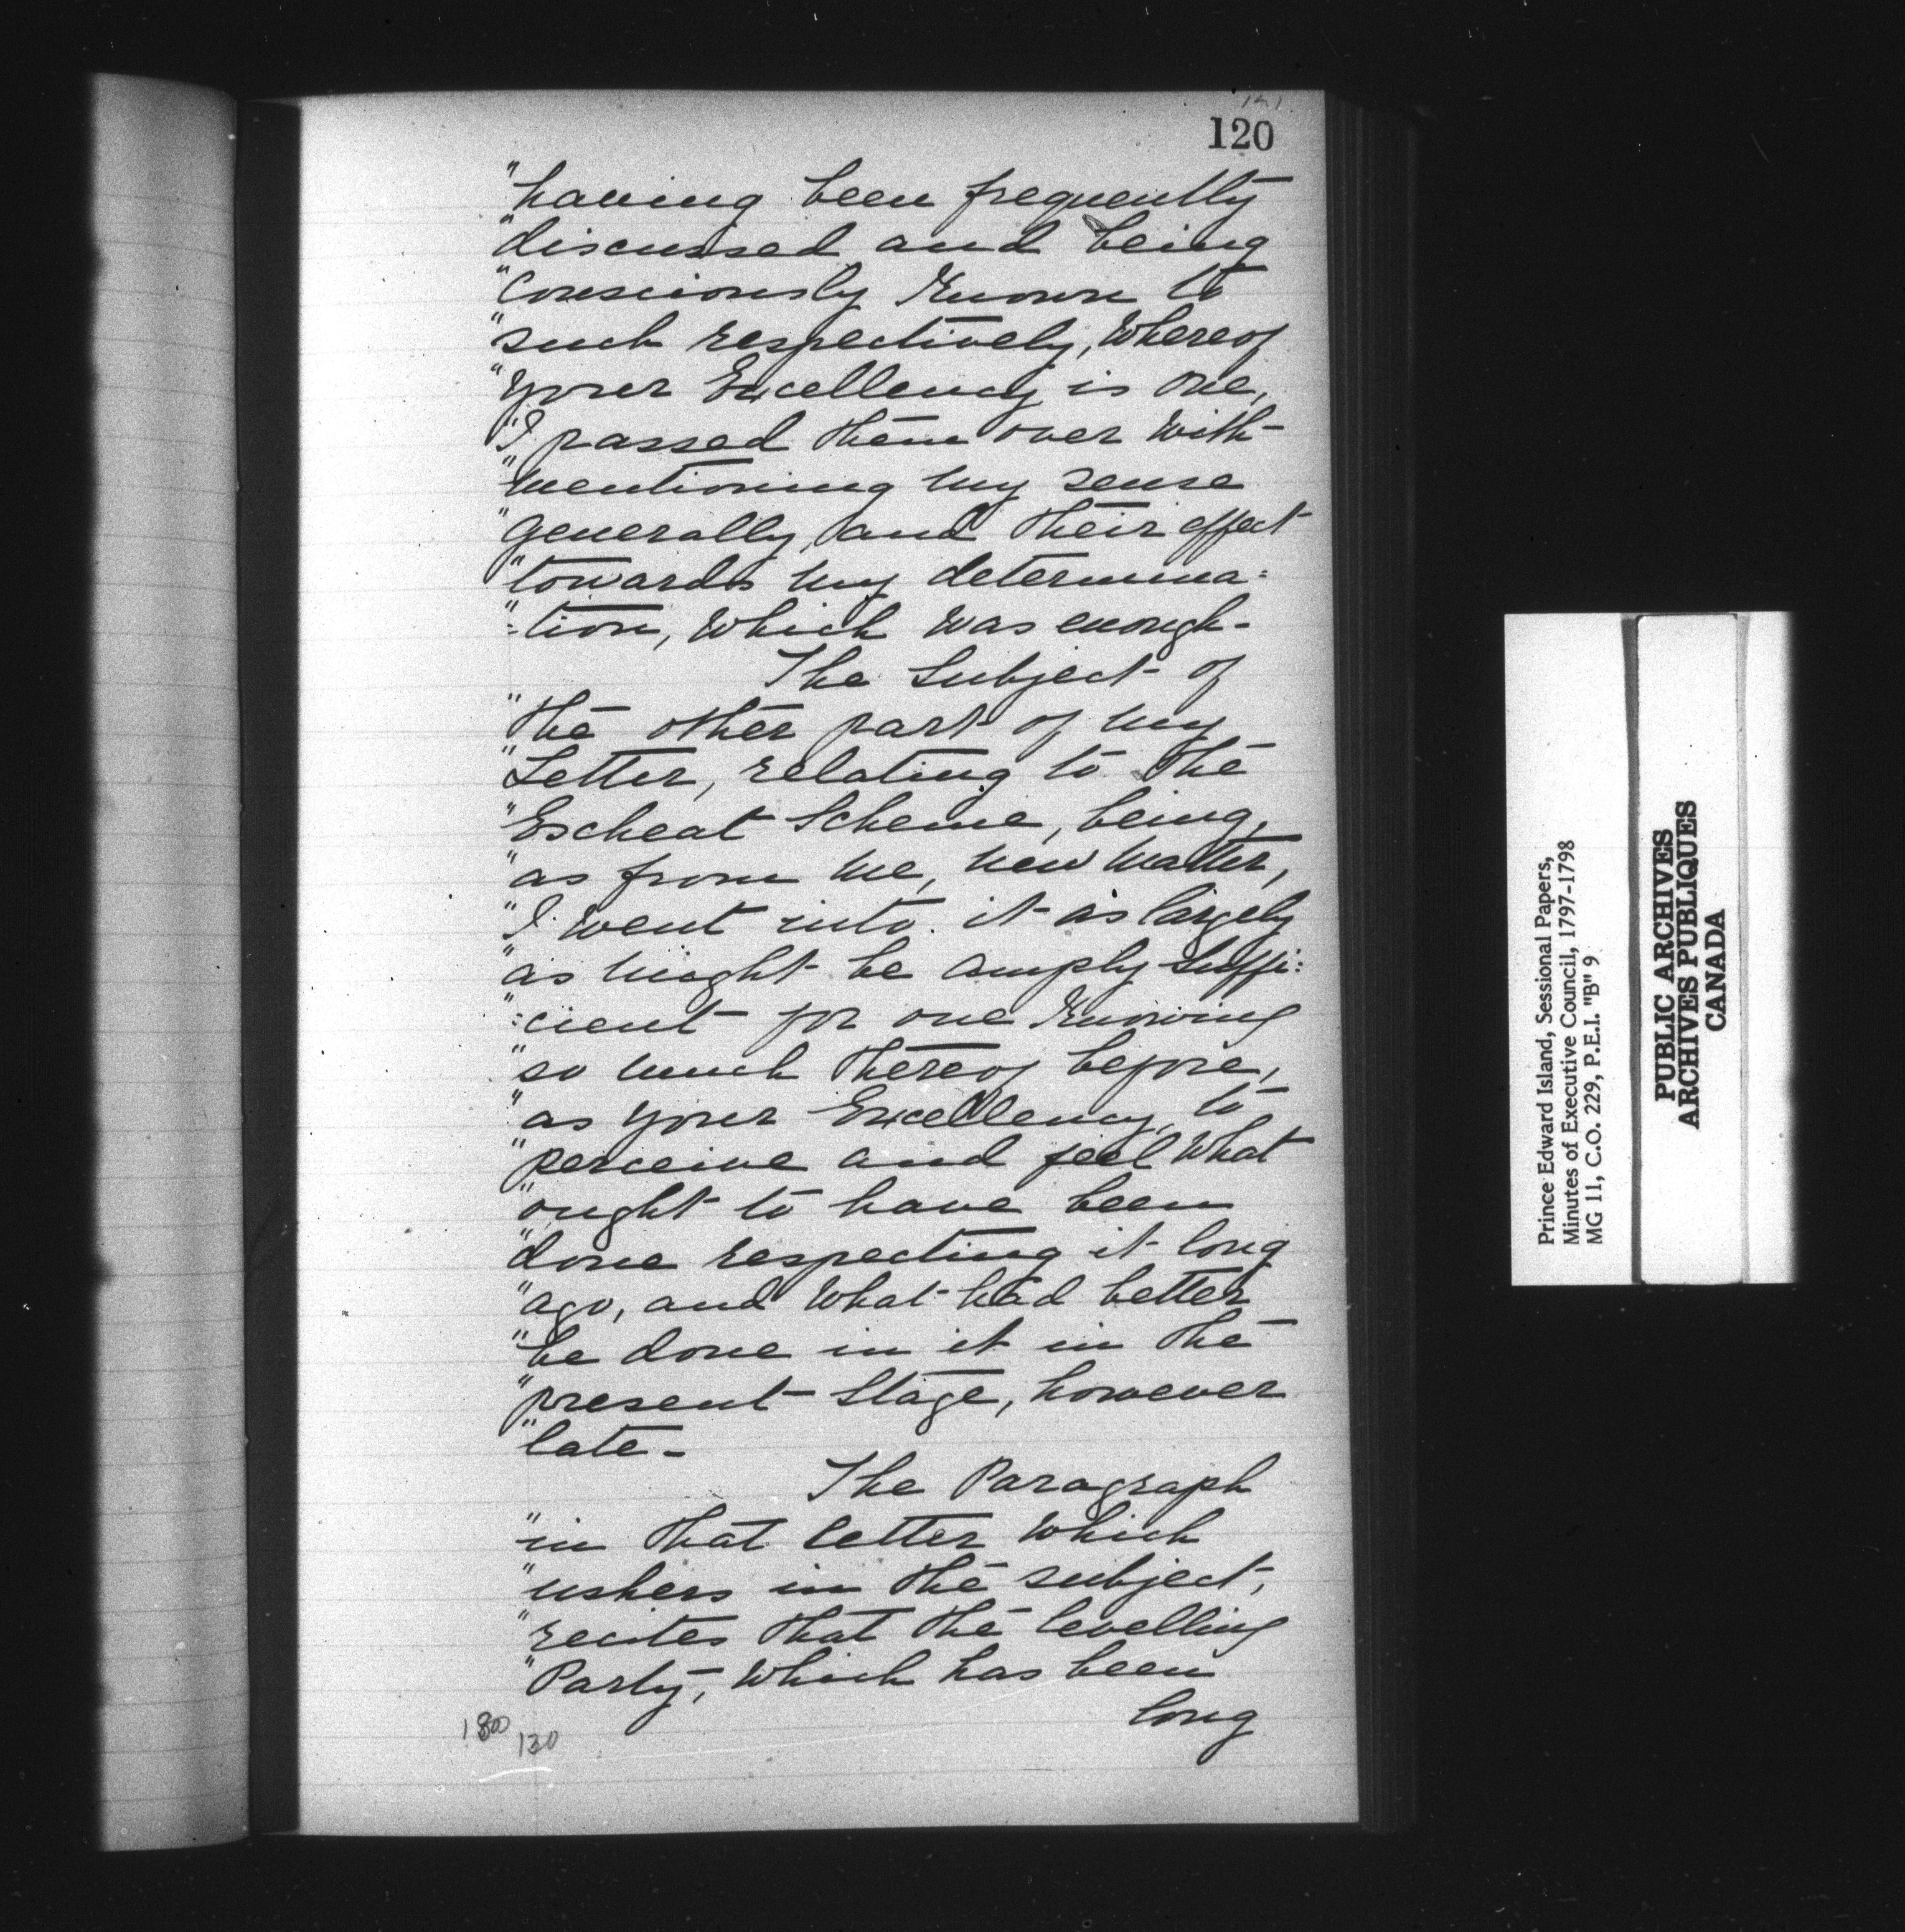 120
"having been frequently
"discussed and being
"Consciously Known to
"such respectively, Whereof
"your Excellency is one,
"I passed them over with-
"mentioning my sense
"generally, and their effect
"towards my determina=
"=tion, Which was enough-
The Subject of
"the other part of my
"Letter, relating to the
"Escheat Scheme, being,
"as from me, new matter,
"I went into it as largely
"as might be amply suffi=
"=cient for one Knowing
"so much thereof before,
"as your Excellency, to
"perceive and feel What
"ought to have been
"done respecting it long
"ago, and What had better
"be done in it in the
"present Stage, however
"late-
The Paragraph
"in that letter which
"ushers in the subject,
"recites that the levelling
"Party, Which has been
long
130
Prince Edward Island, Sessional Papers,
Minutes of Executive Council, 1797-1798
MG 11, C.O. 229, P.E.I. "B" 9
PUBLIC ARCHIVES
ARCHIVES PUBLIQUES
CANADA